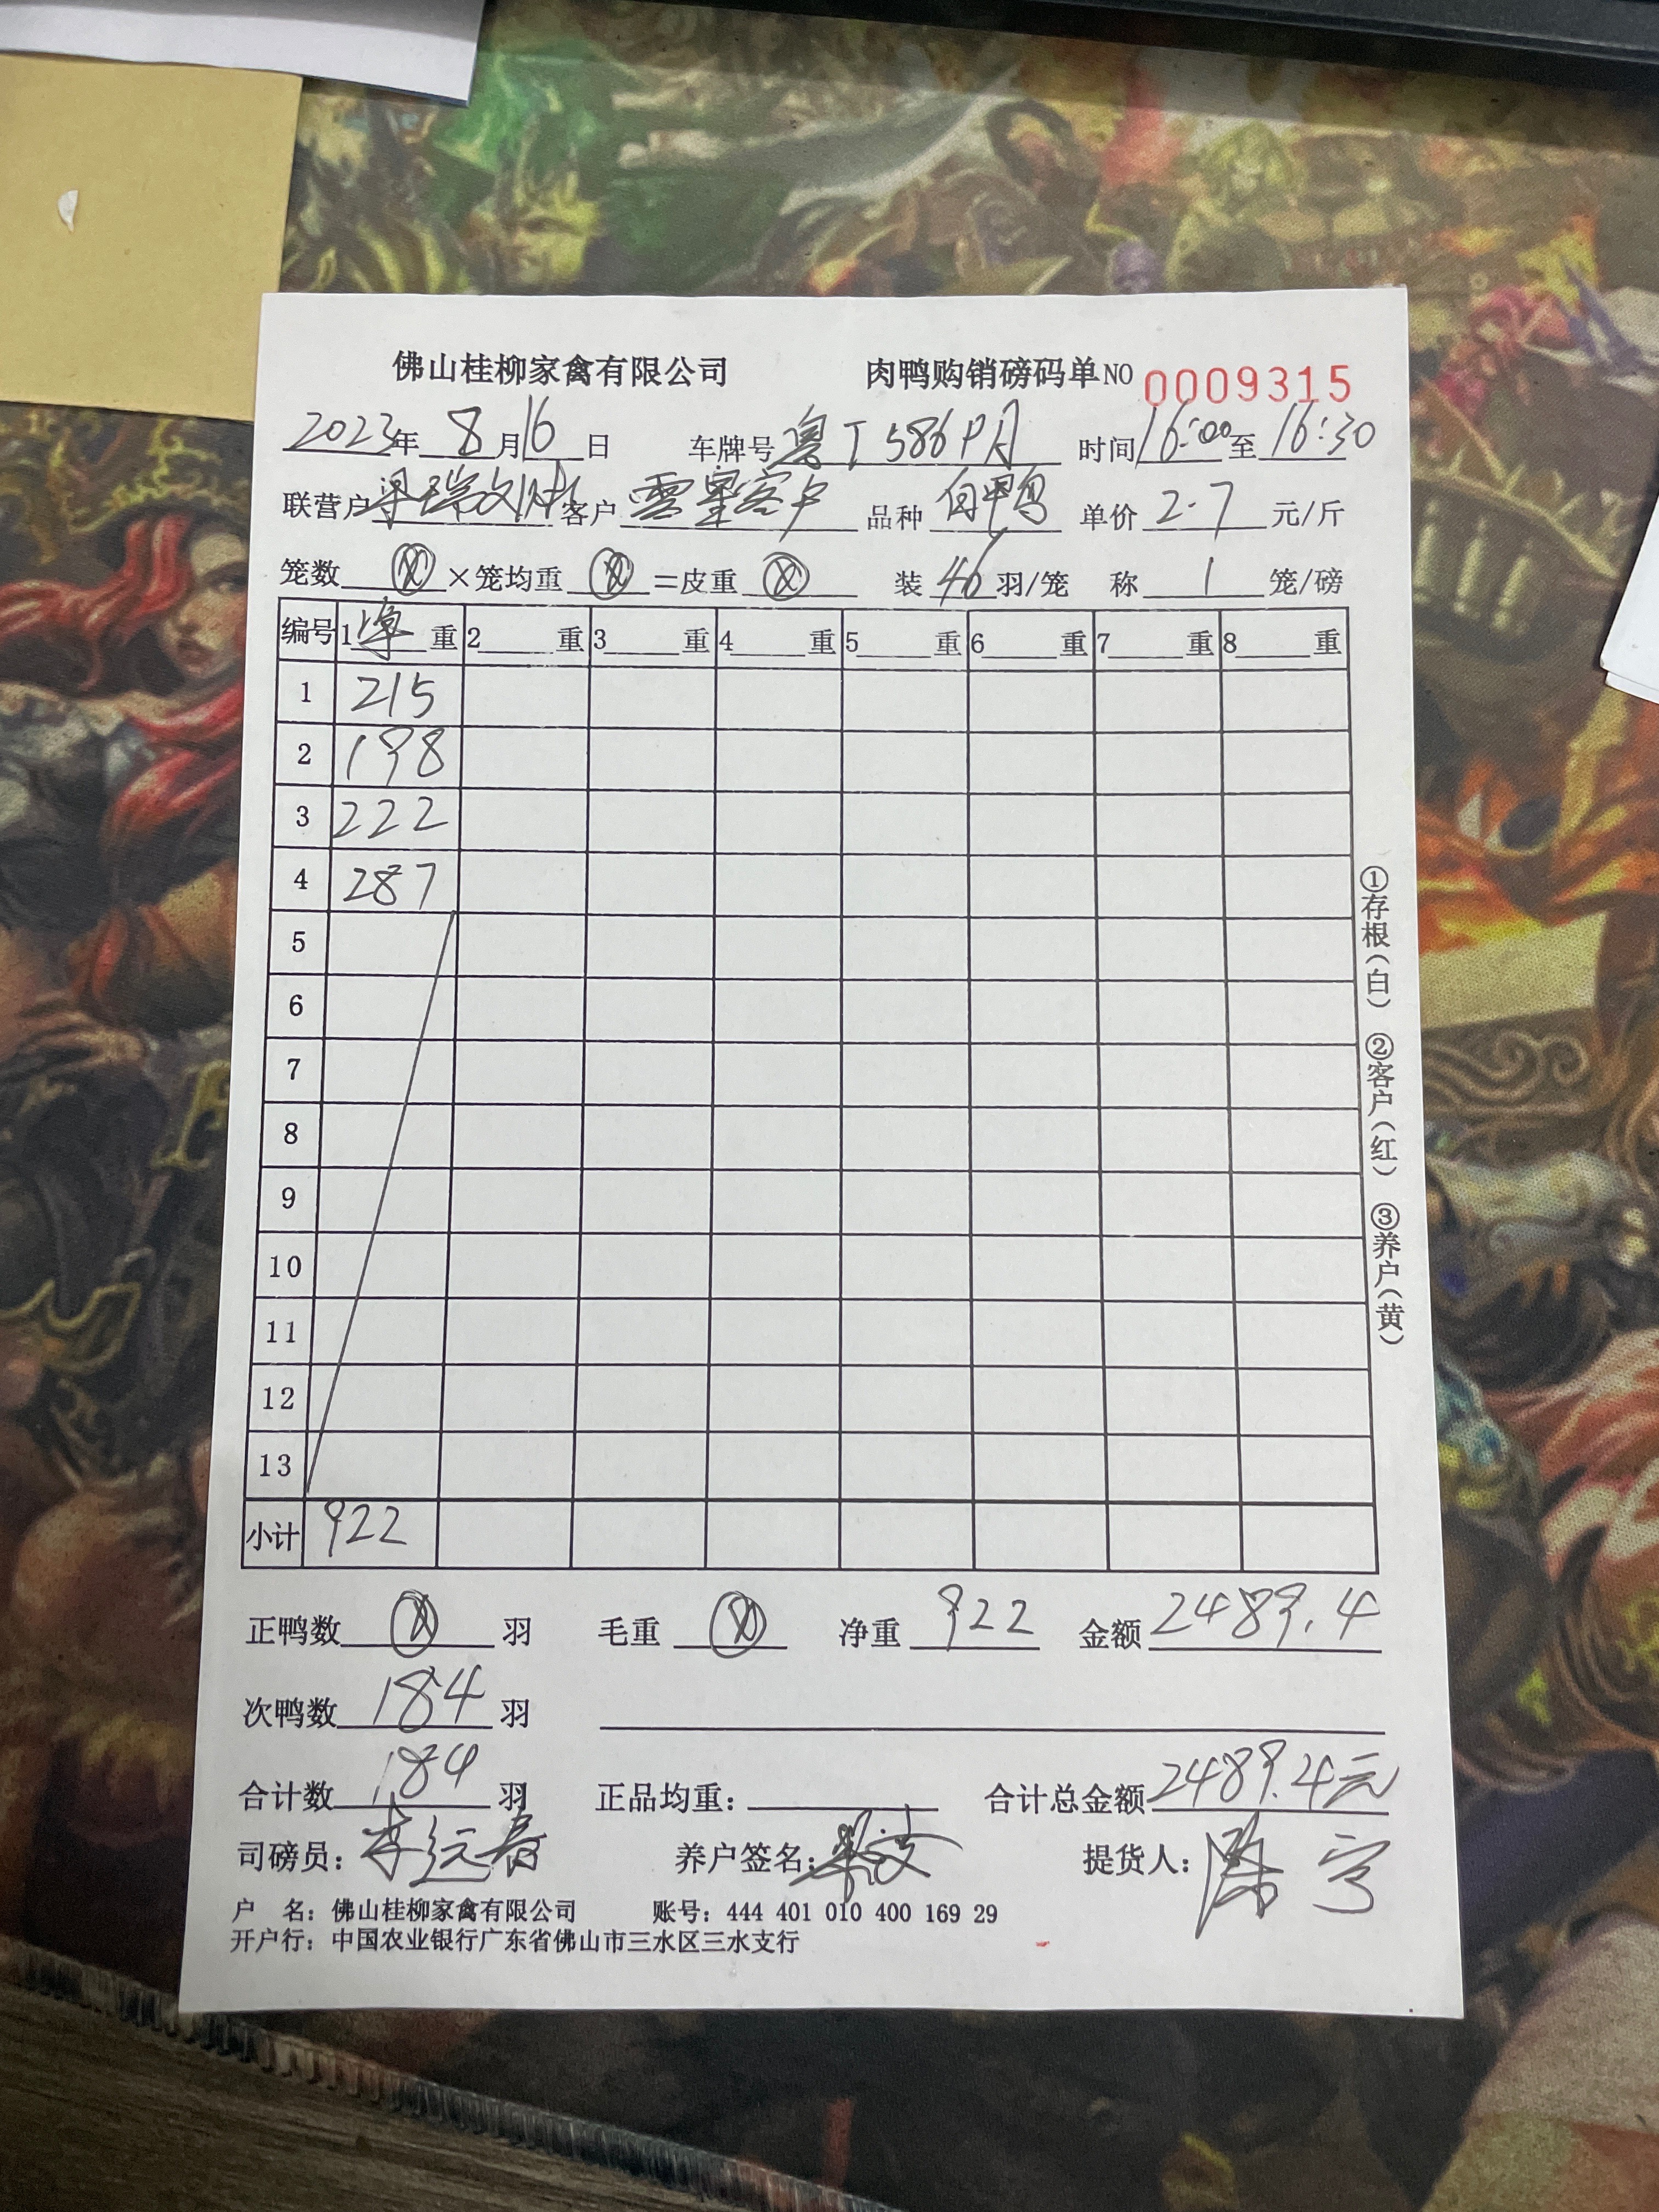 佛山桂柳家禽有限公司 肉鸭购销磅码单NO 0009315
2023年 8月16日 车牌号 粤T 586 时间16:00至16:30
联营户 客户 品种 白鸭 单价 2.7 元/斤
笼数 ×笼均重 =皮重 装 46 羽/笼 称 1 笼/磅
编号 1净重 2 重 3 重 4 重 5 重 6 重 7 重 8 重
1 215
2 198
3 222
4 287
5
6
7
8
9
10
11
12
13
小计 922
正鸭数 羽 毛重 净重 922 金额 2489.4
次鸭数 184 羽
合计数 184 羽 正品均重: 合计总金额 2489.4元
司磅员: 养户签名: 提货人:
户 名: 佛山桂柳家禽有限公司 账号: 444 401 010 400 169 29
开户行: 中国农业银行广东省佛山市三水区三水支行
①存根(白) ②客户(红) ③养户(黄)